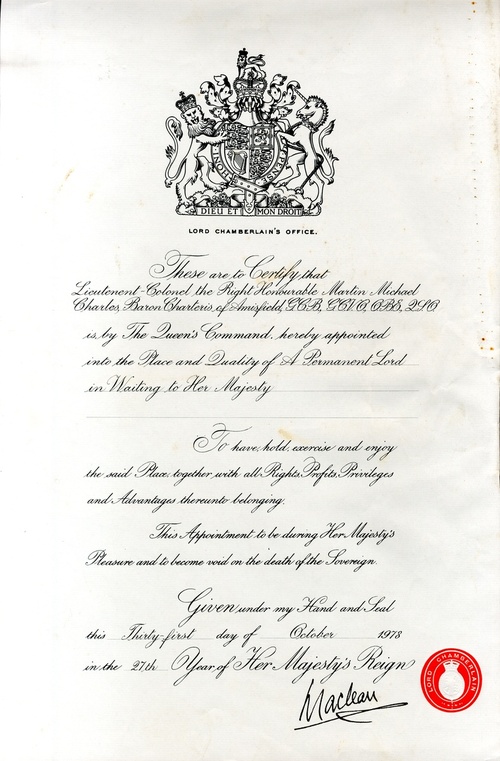 HONI
PENSE
DIEU ET MON DROIT
LORD CHAMBERLAIN'S OFFICE.
These are to Certify, that
Lieutenent-Colonel the Right Honourable Martin Michael
Charles, Baron Charteris of Amisfield, G.C.B, G.C.V.O, O.B.E, Q.S.O
is, by The Queen's Command, hereby appointed
into the Place and Quality of A Permanent Lord
in Waiting to Her Majesty
To have, hold, exercise and enjoy
the said Place, together with all Rights, Profits, Privileges
and Advantages thereunto belonging.
This Appointment to be during Her Majesty's
Pleasure and to become void on the death of the Sovereign.
Given under my Hand and Seal
this Thirty-first day of October 1978
in the 27th Year of Her Majesty's Reign
Maclean
LORD CHAMBERLAIN